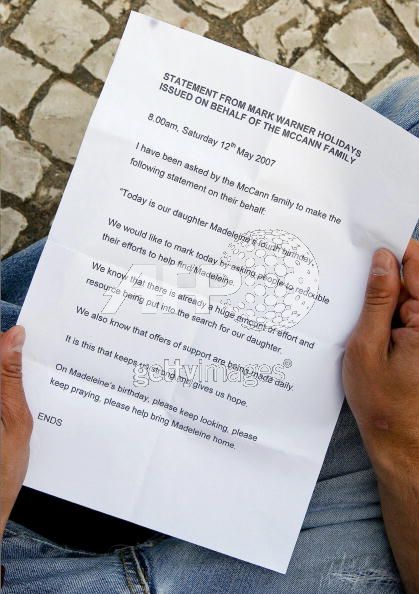 STATEMENT FROM MARK WARNER HOLIDAYS
ISSUED ON BEHALF OF THE MCCANN FAMILY
8.00am, Saturday 12th May 2007
I have been asked by the McCann family to make the
following statement on their behalf:
"Today is our daughter Madeleine's fourth birthday.
We would like to mark today by asking people to redouble
their efforts to help find Madeleine.
We know that there is already a huge amount of effort and
resource being put into the search for our daughter.
We also know that offers of support are being made daily.
It is this that keeps us strong and gives us hope.
On Madeleine's birthday, please keep looking, please
keep praying, please help bring Madeleine home.
ENDS
AFP
gettyimages®